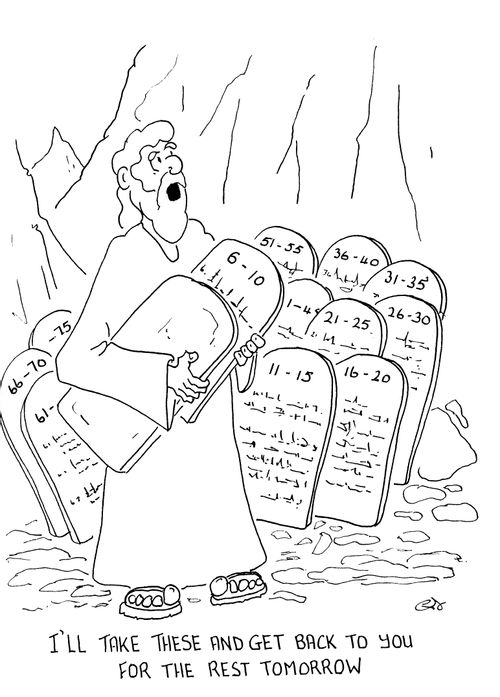 51-55
36-40
6-10
31-35
1-4
26-30
21-25
-75
66-70
11-15
16-20
61-
I'LL TAKE THESE AND GET BACK TO YOU
FOR THE REST TOMORROW